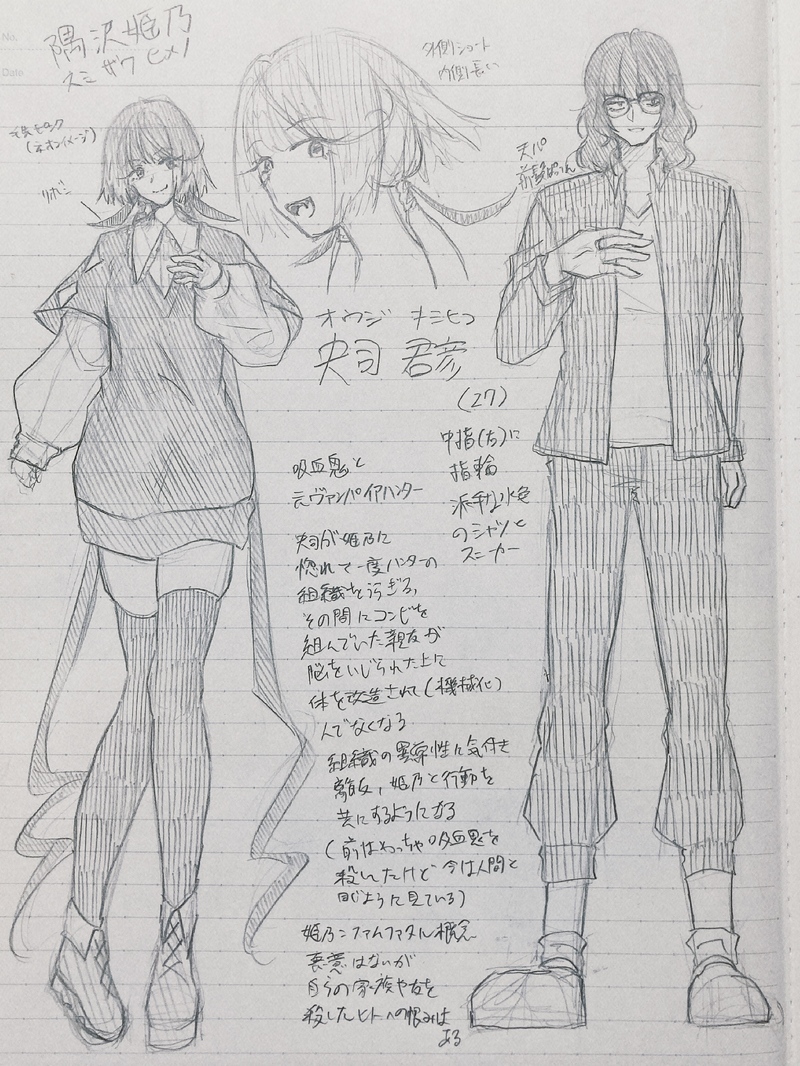 No.
Date
隅沢姫乃
スミザワ ヒメノ
外側ショート
内側長い
(ネオンイメージ)
リボン
天パ
オウジ キミヒコ
央司 君彦
(27)
中指(右)に
指輪
派手な水色
のシャツと
スニーカー
吸血鬼と
元ヴァンパイアハンター
央司が姫乃に
惚れて一度ハンターの
組織をうらぎる,
その間にコンビを
組んでいた親友が
脳をいじられた上に
体を改造されて(機械化)
人でなくなる
組織の異常性に気付き
離反、姫乃と行動を
共にするようになる
(前はめっちゃ吸血鬼を
殺してたけど、今は人間と
同じように見ている)
姫乃=ファムファタル概念
悪意はないが
自分の家族や友を
殺したヒトへの恨みは
ある